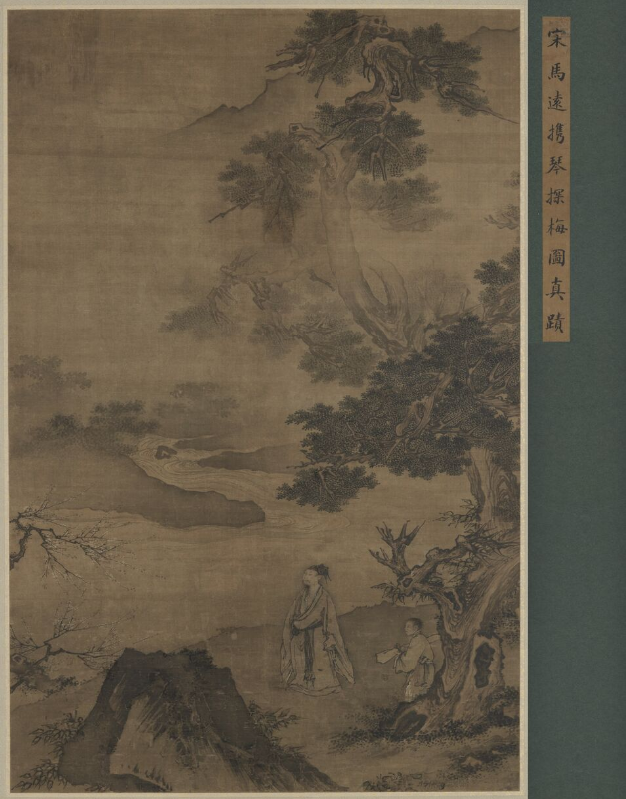 宋馬遠攜琴探梅圖真蹟